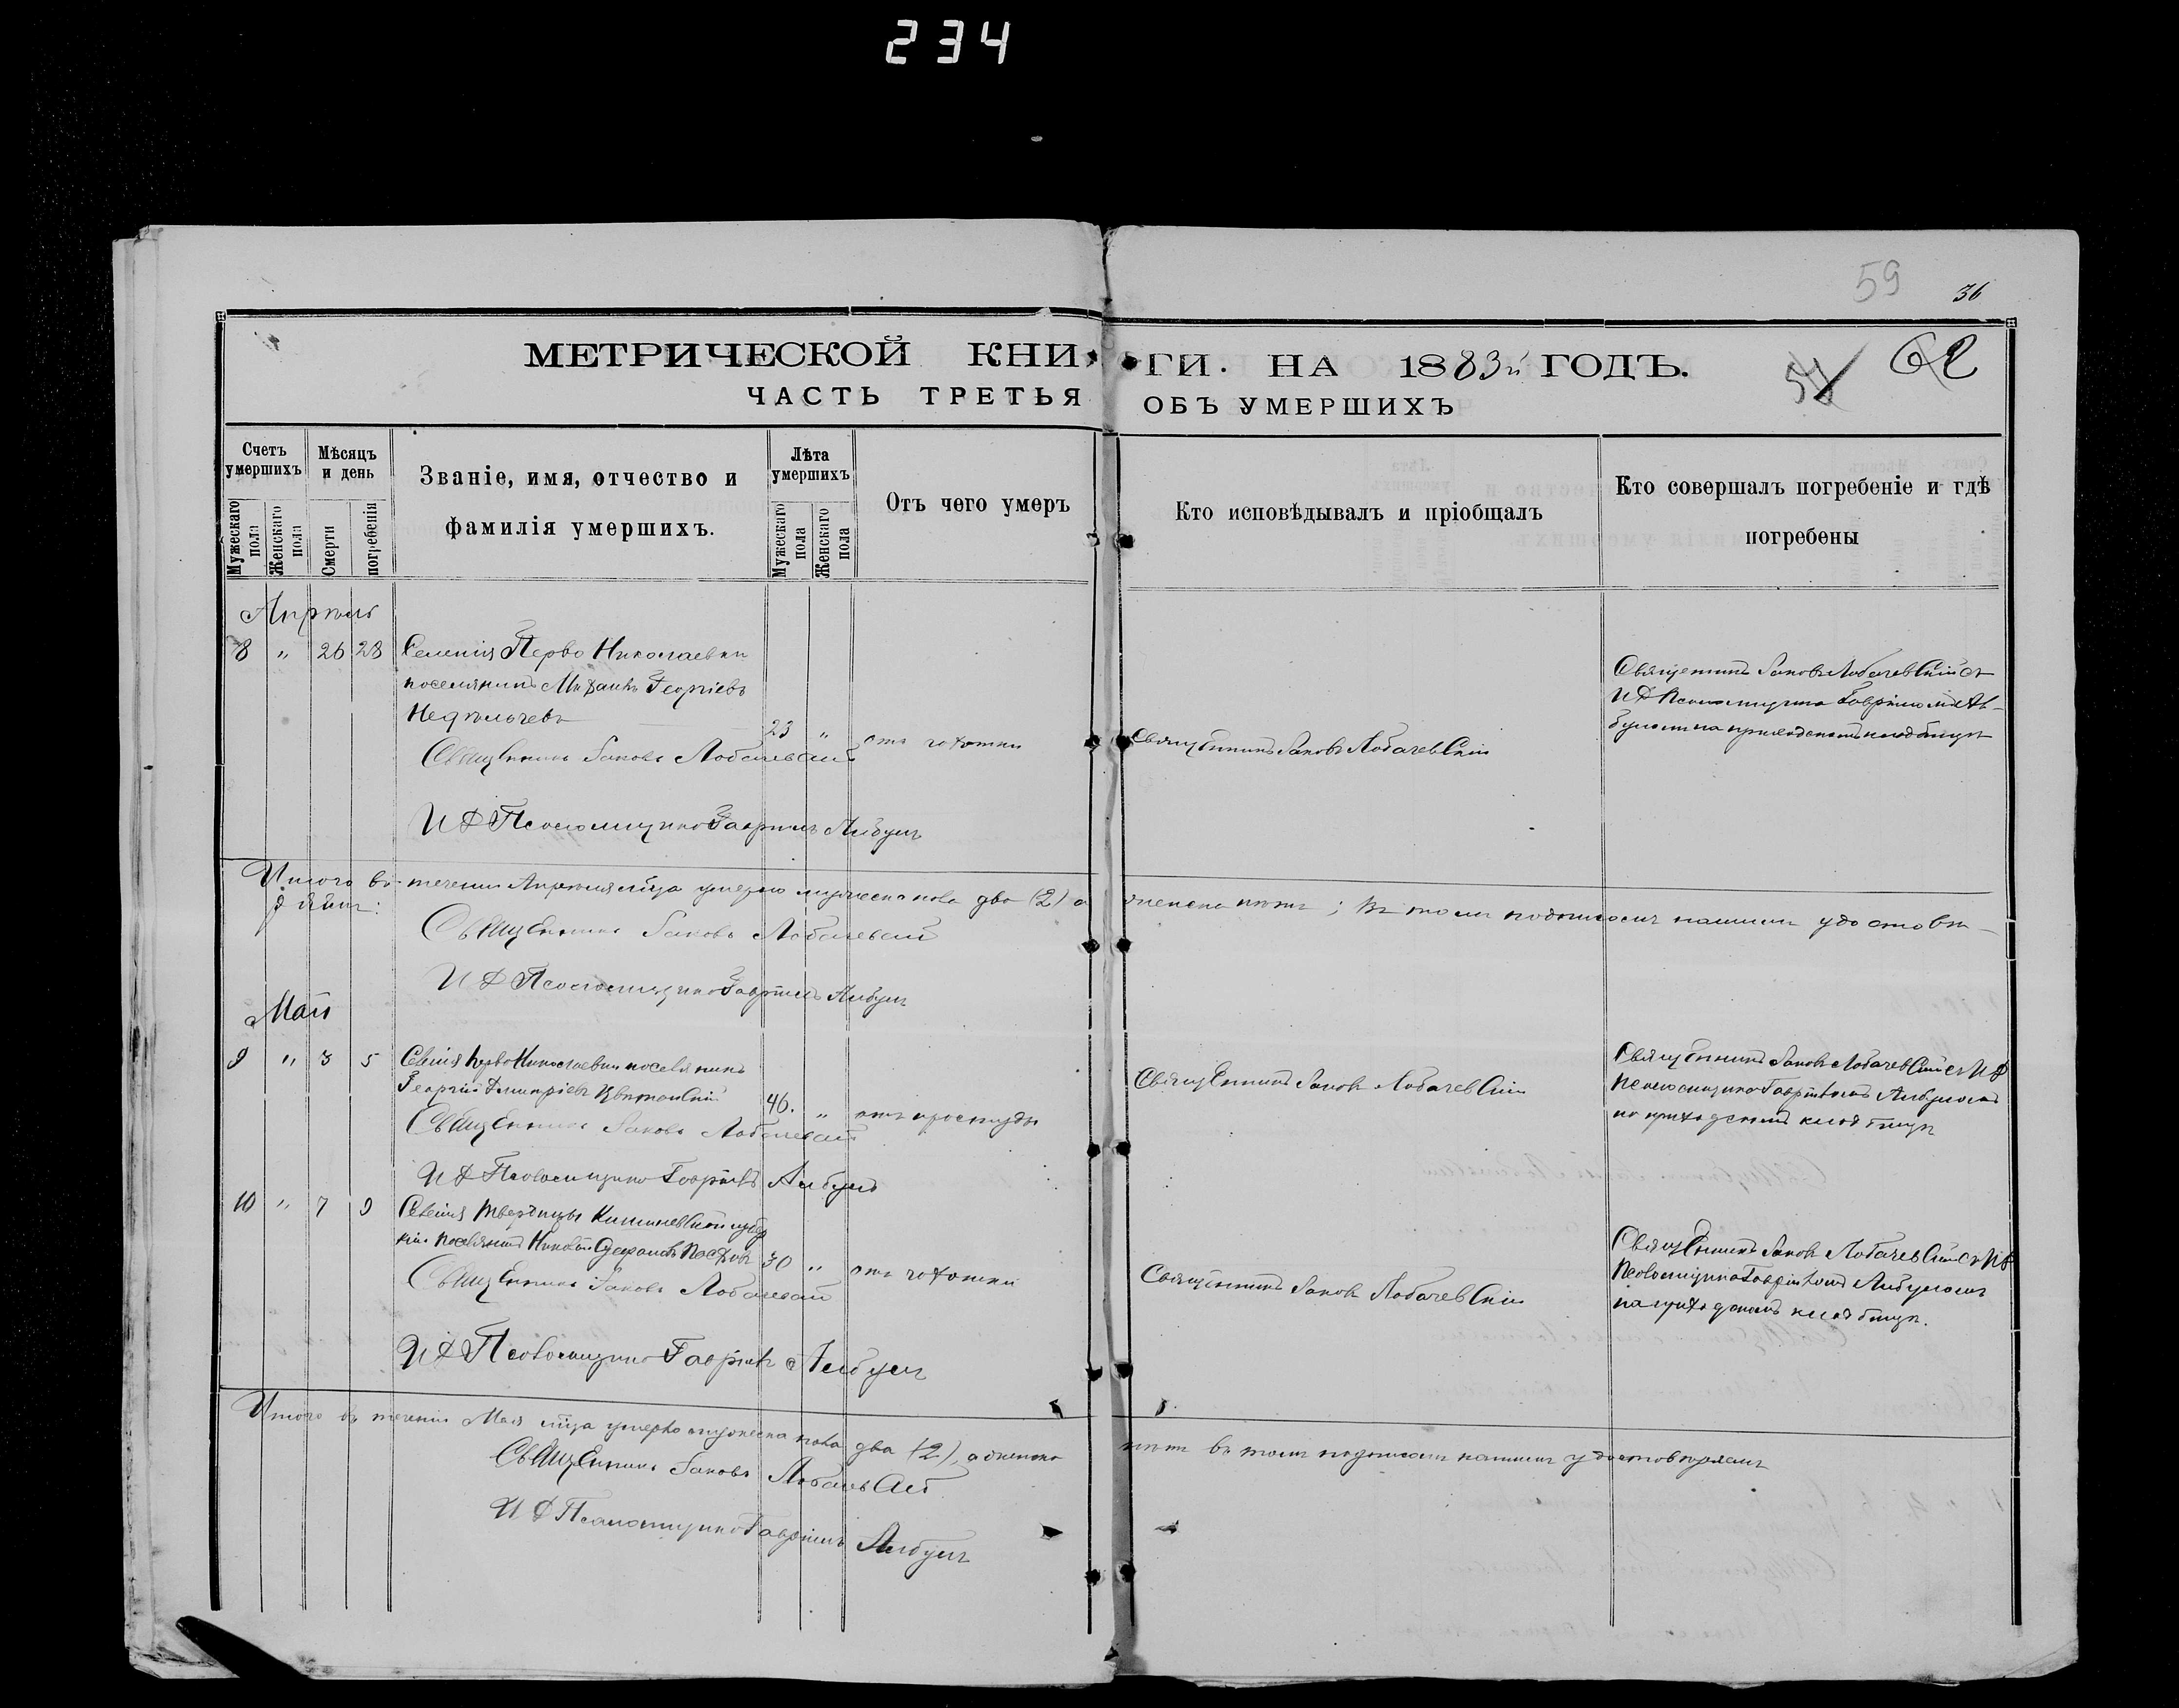 234
59
36
62
МЕТРИЧЕСКОЙ КНИГИ. НА 1883й ГОДЪ.
ЧАСТЬ ТРЕТЬЯ ОБЪ УМЕРШИХЪ
Счетъ умершихъ
Мѣсяцъ и день
Званіе, имя, отчество и
фамилія умершихъ.
Лѣта умершихъ
Отъ чего умеръ
Кто исповѣдывалъ и пріобщалъ
Кто совершалъ погребеніе и гдѣ
погребены
Мужескаго пола
Женскаго пола
Смерти
погребенія
Мужескаго пола
Женскаго пола
Апрѣль
8 " 26 28 Селенія Перво Николаевки
поселянинъ Михаилъ Георгіевъ
23 " отъ чахотки
Священникъ Іаковъ Лобачевскій
Священникъ Іаковъ Лобачевскій
Священникъ Іаковъ Лобачевскій съ
И Д Псаломщика Гавріиломъ
на приходскомъ кладбищѣ
И Д Псаломщика Гавріилъ
Итого въ теченіи Апрѣля мѣца умерло мужеска пола два (2) а женска нѣтъ; въ томъ подписомъ нашимъ удостовѣ-
Священникъ Іаковъ Лобачевскій
И Д Псаломщика Гавріилъ
Май
9 " 3 5 Селенія Перво Николаевки поселянинъ
Георгій Димитріевъ
46. " отъ простуды
Священникъ Іаковъ Лобачевскій
Священникъ Іаковъ Лобачевскій
Священникъ Іаковъ Лобачевскій съ И Д
Псаломщика Гавріиломъ
на приходскомъ кладбищѣ
И Д Псаломщика Гавріилъ
10 " 7 9 Селенія Твардицы
поселянинъ
30 " отъ чахотки
Священникъ Іаковъ Лобачевскій
Священникъ Іаковъ Лобачевскій
Священникъ Іаковъ Лобачевскій съ И Д
Псаломщика Гавріиломъ
на приходскомъ кладбищѣ.
И Д Псаломщика Гавріилъ
Итого въ теченіи Мая мѣца умерло мужеска пола два (2), а женска нѣтъ въ томъ подписомъ нашимъ удостовѣряемъ
Священникъ Іаковъ Лобачевскій
И Д Псаломщика Гавріилъ